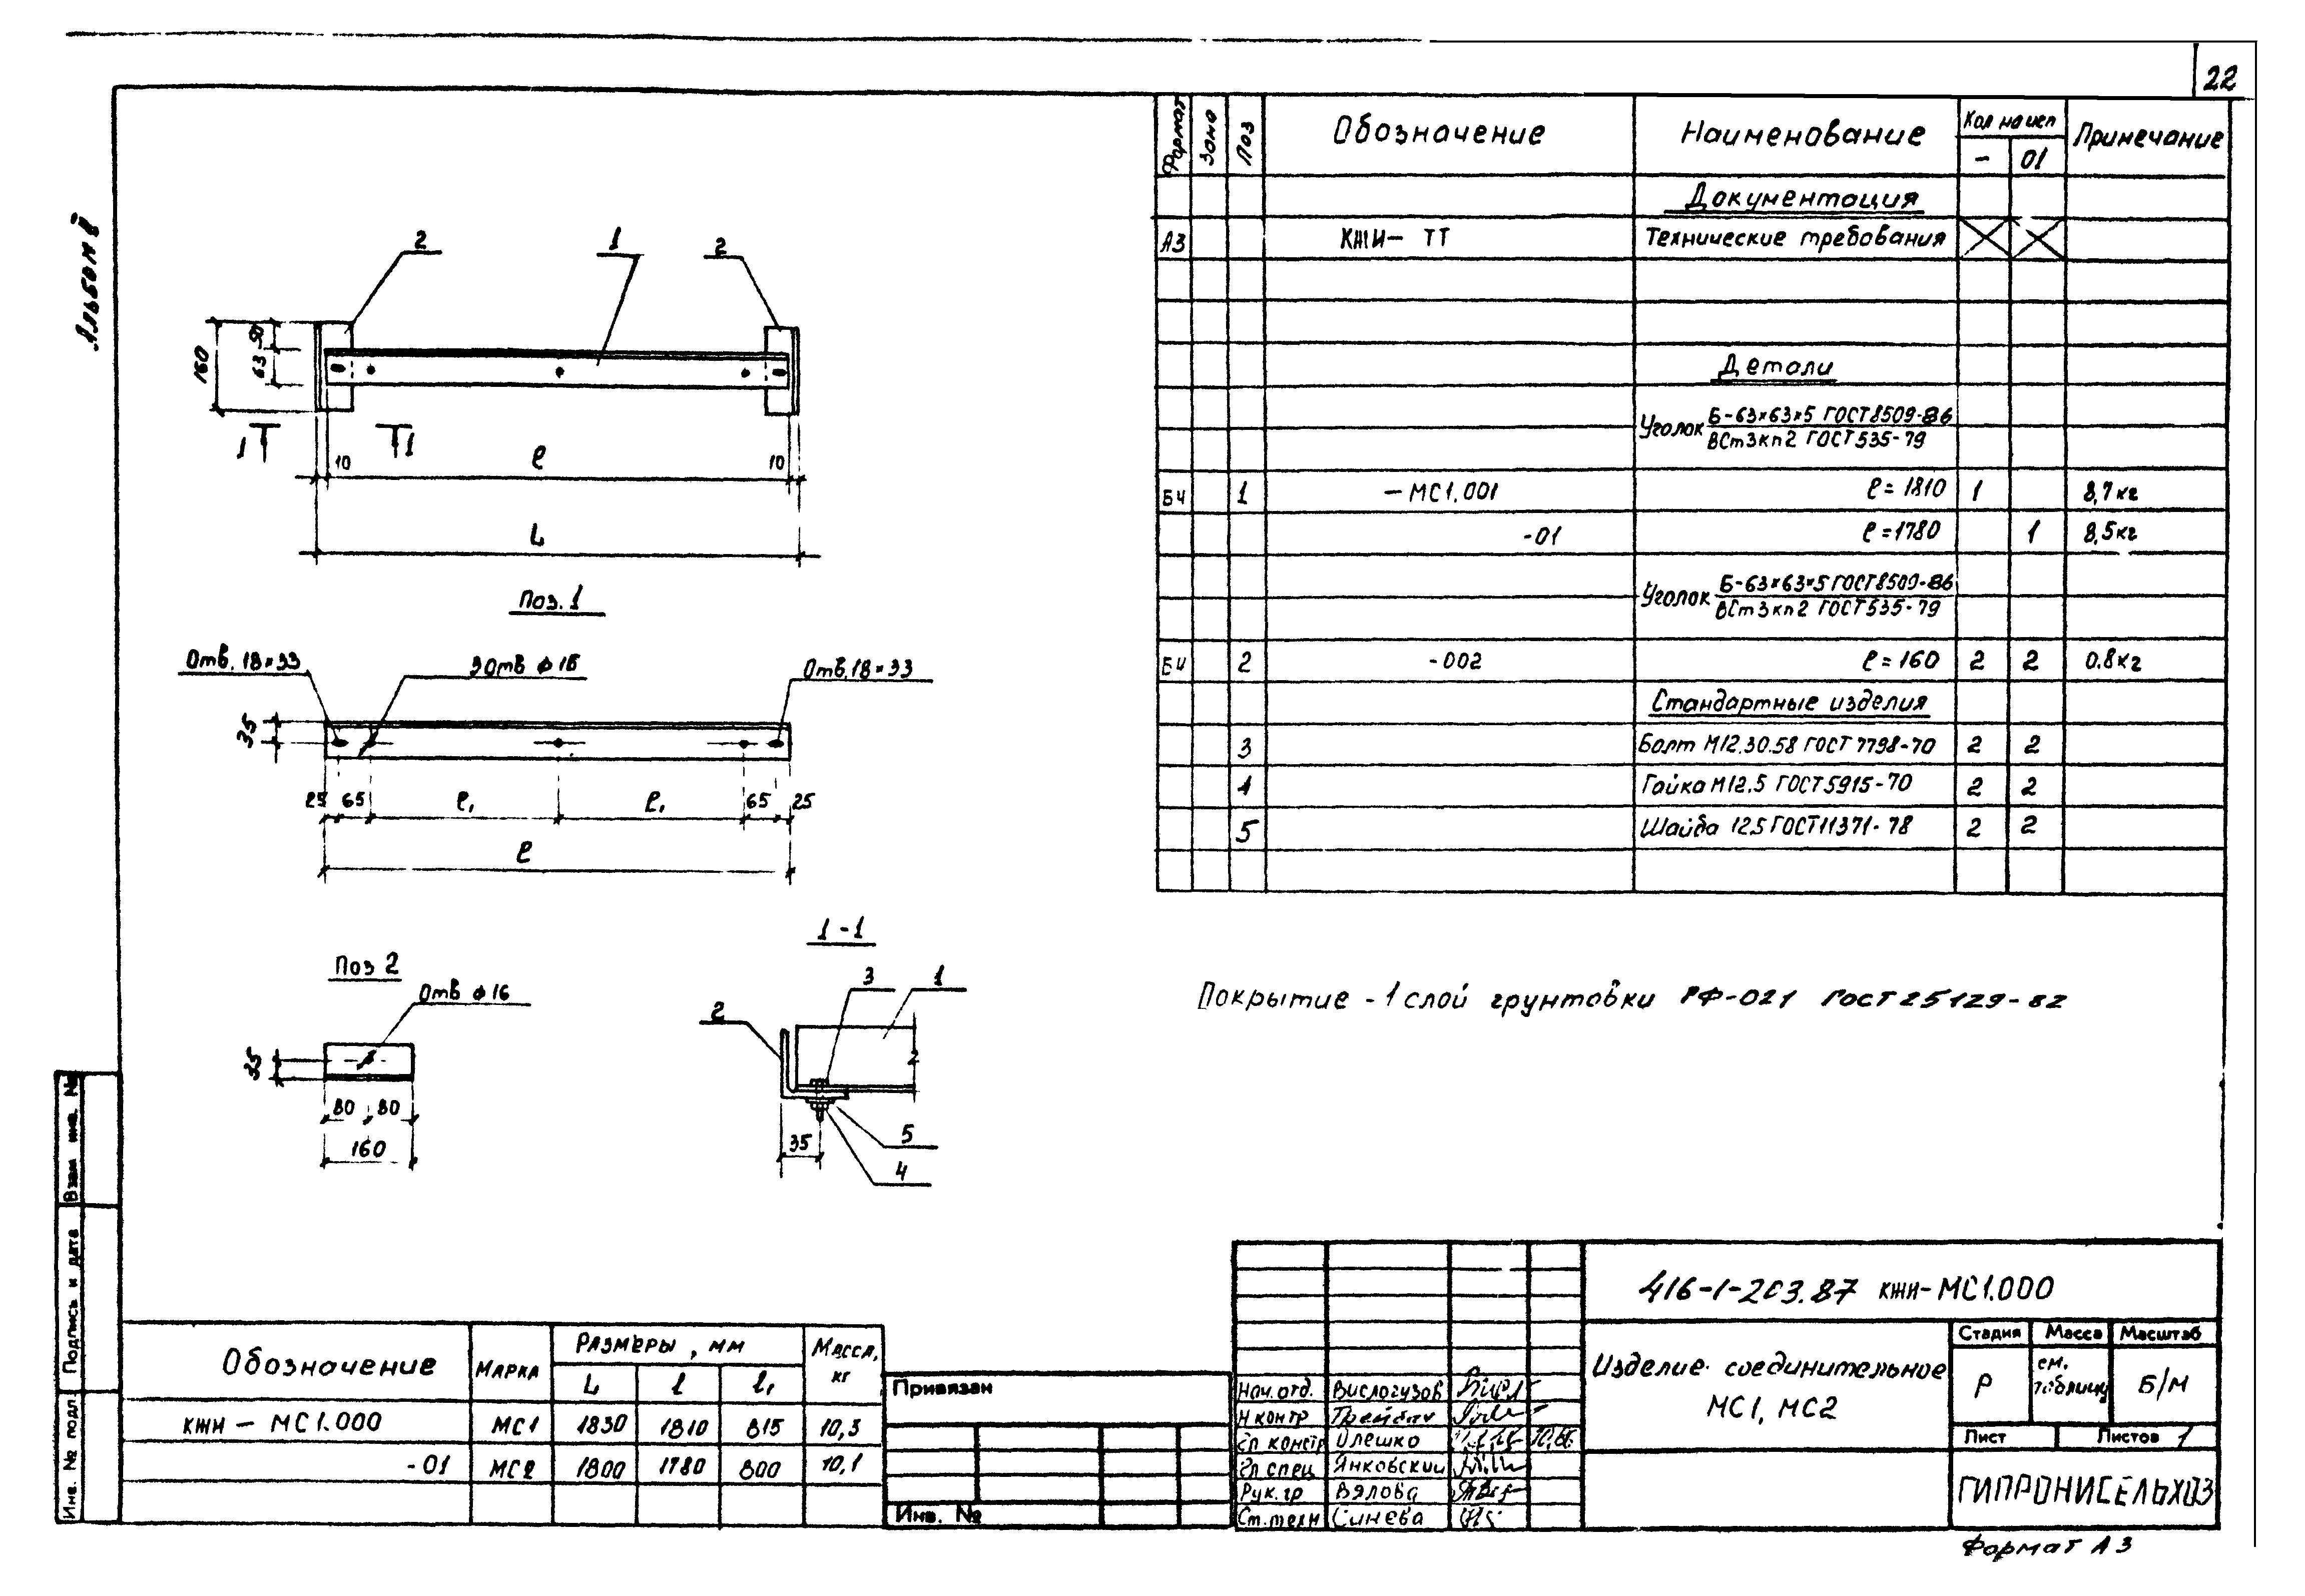 22
Альбом II
Формат Зона Поз Обозначение Наименование Кол на исп Примечание
- 01
Документация
А3 КЖИ- ТТ Технические требования
Детали
Уголок Б-63×63×5 ГОСТ 8509-86
ВСт3кп2 ГОСТ 535-79
БЧ 1 -МС1.001 ℓ=1810 1 8,7кг
-01 ℓ=1780 1 8,5кг
Уголок Б-63×63×5 ГОСТ 8509-86
ВСт3кп2 ГОСТ 535-79
БЧ 2 -002 ℓ=160 2 2 0.8кг
Стандартные изделия
3 Болт М12.30.58 ГОСТ 7798-70 2 2
4 Гайка М12.5 ГОСТ 5915-70 2 2
5 Шайба 12.5 ГОСТ 11371-78 2 2
2 1 2
160 50 63
1 1
10 ℓ 10
L
Поз. 1
Отв. 18×33 3 Отв ϕ16 Отв. 18×33
35
25 65 ℓ₁ ℓ₁ 65 25
ℓ
Поз 2
Отв ϕ16
35
80 80
160
1-1
3 1
2
2
35
5
4
Покрытие - 1 слой грунтовки ГФ-021 ГОСТ 25129-82
Обозначение Марка Размеры, мм Масса, кг
L ℓ ℓ₁
КЖИ - МС1.000 МС1 1830 1810 815 10,3
-01 МС2 1800 1780 800 10,1
Привязан
Инв. №
416-1-203.87 КЖИ-МС1.000
Изделие соединительное
МС1, МС2
Стадия Масса Масштаб
Р см. таблицу Б/М
Лист Листов 1
ГИПРОНИСЕЛЬХОЗ
Нач. отд. Вислогузов
Н контр
Гл констр Олешко
Гл спец Янковский
Рук. гр Вялова
Ст. техн Синева
Взам инв. №
Подпись и дата
Инв. № подл.
Формат А3